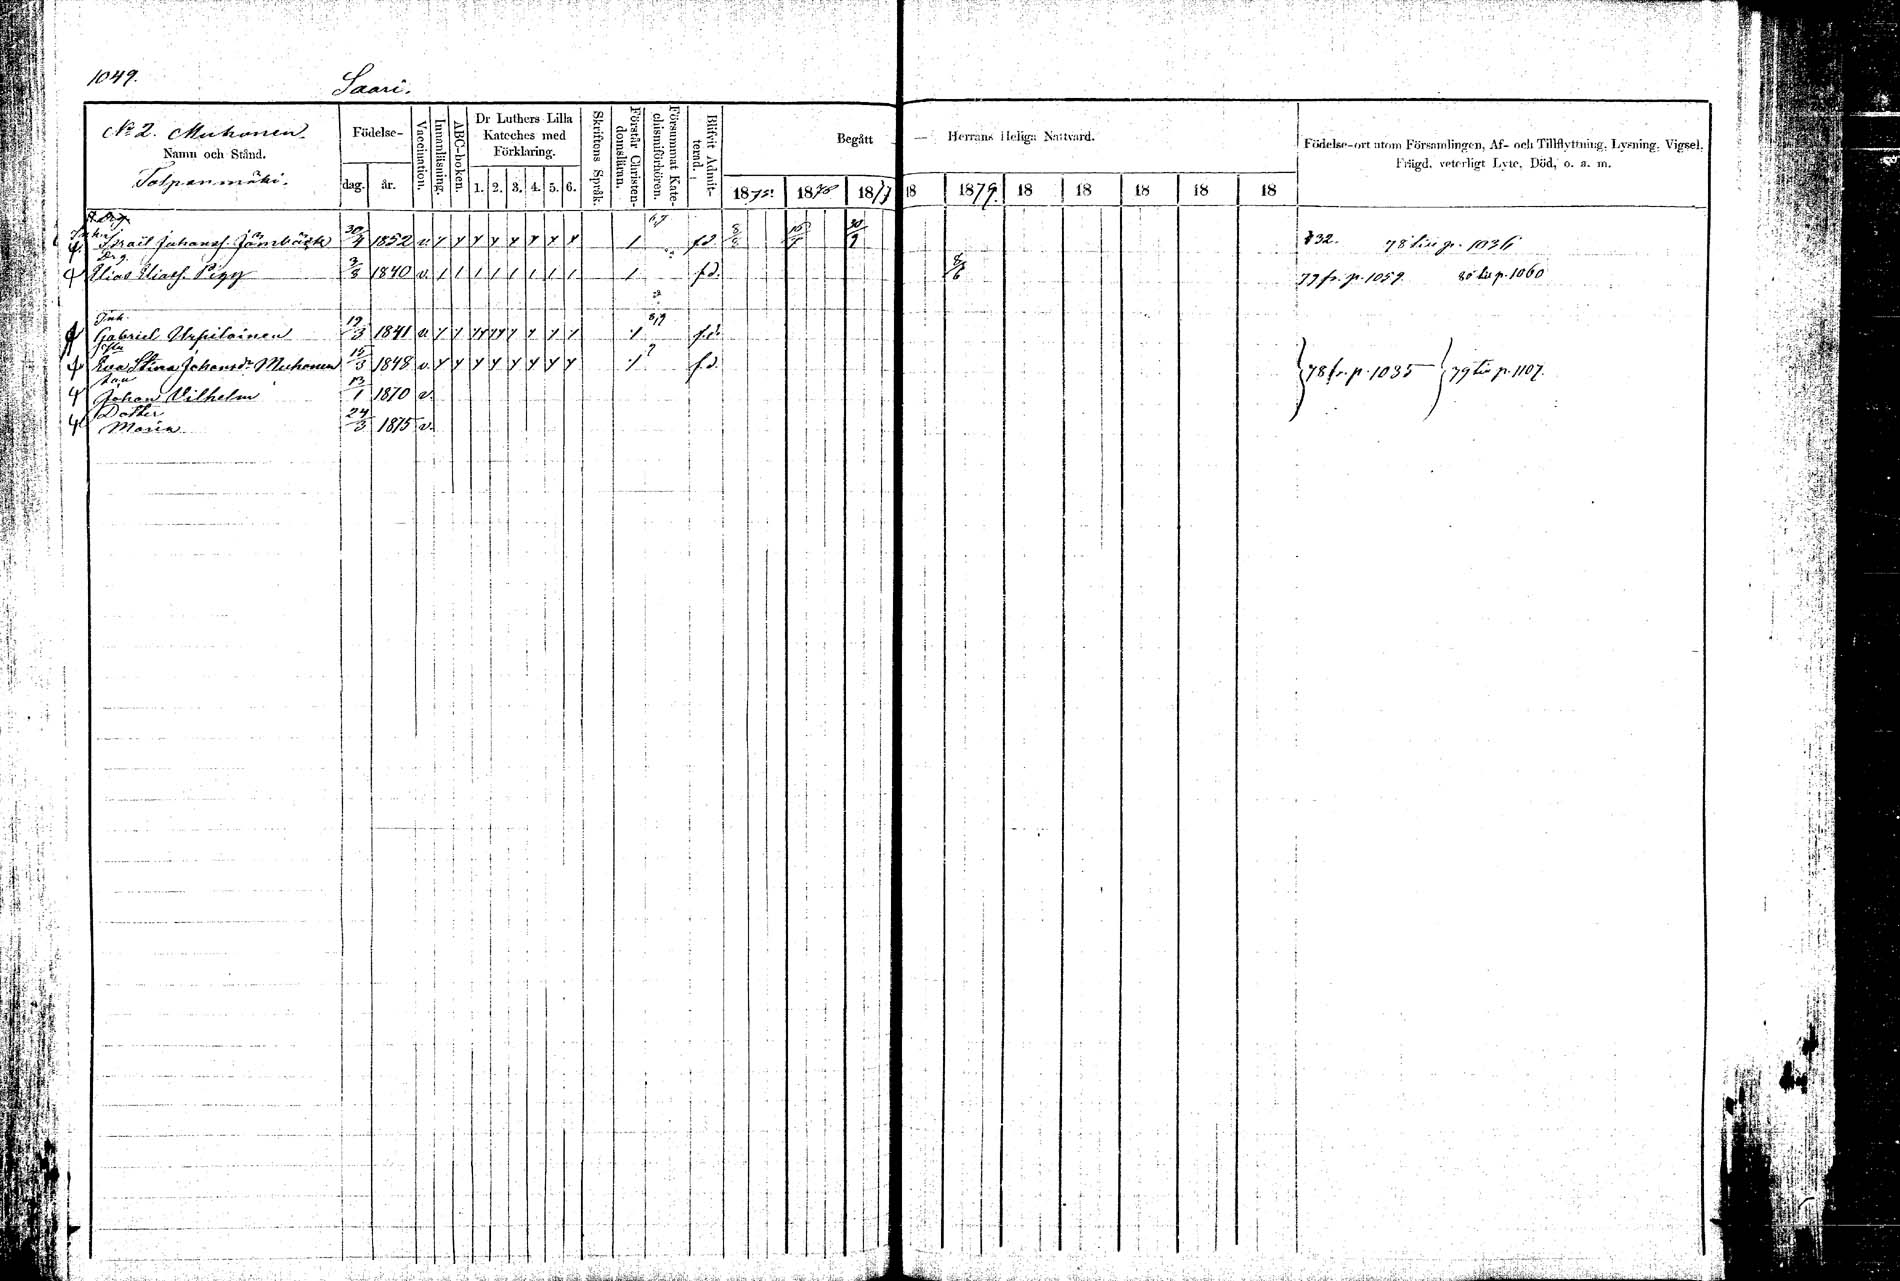 1049.
Saari.
No 2. Muhonen.
Namn och Stånd.
Tolpanmäki.
Födelse-
dag. år.
Vaccination.
Innanläsning.
ABC-boken.
Dr Luthers Lilla Kateches med Förklaring.
1. 2. 3. 4. 5. 6.
Skriftens Språk.
Förstår Christendomsläran.
Försummat Katechismiförhören.
Blifvit Admitterad.
Begått — Herrans Heliga Nattvard.
1875 1876 1877 18 1879. 18 18 18 18 18
Födelse-ort utom Församlingen, Af- och Tillflyttning, Lysning, Vigsel, Frägd, veterligt Lyte, Död, o. a. m.
Israël Johansf. 30/4 1852 v. f.d. 78 till p. 1036
Elias Eliasf. 1840 v. f.d. 8/6 79 fr. p. 1059. 80 till p. 1060
Inh.
Gabriel Urpilainen 19/3 1841 v. f.d.
Eva Stina Johansdr Muhonen 15/3 1848 v. f.d. 78 fr. p. 1035 79 till p. 1107.
Son
Johan Vilhelm 13/1 1870 v.
Dotter
Maria 24/3 1875 v.